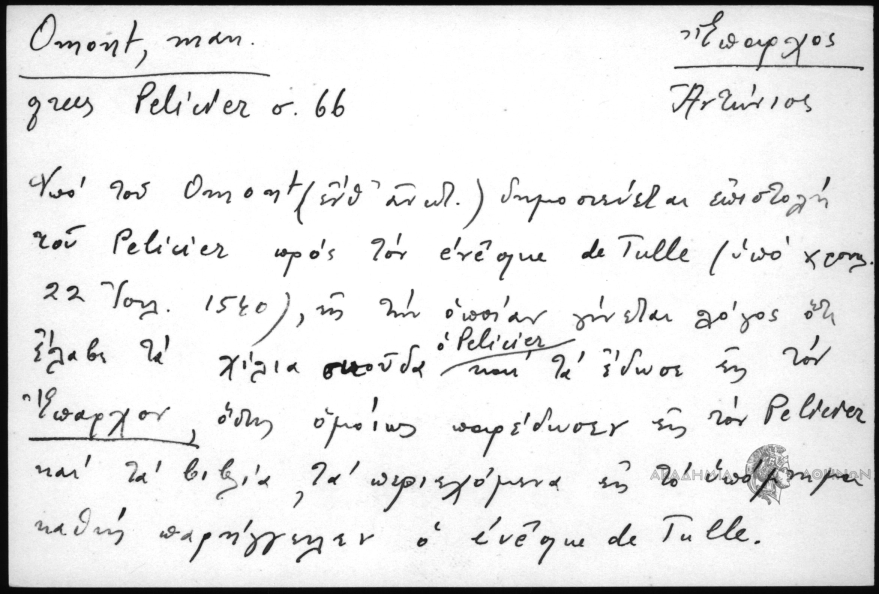 Omont, man.
grecs Pelicier σ. 66
Ἔπαρχος
Ἀντώνιος
Ὑπό τοῦ Omont (ἔνθ' ἀνωτ.) δημοσιεύεται ἐπιστολή
τοῦ Pelicier πρός τόν évêque de Tulle (ὑπό χρον.
22 Ἰουλ. 1540), εἰς τήν ὁποίαν γίνεται λόγος ὅτι
ἔλαβε τά χίλια σκοῦδα ὁ Pelicier καί τά ἔδωσε εἰς τόν
Ἔπαρχον, ὅστις ὁμοίως παρέδωσεν εἰς τόν Pelicier
καί τά βιβλία, τά περιεχόμενα εἰς τό ὑπόμνημα
καθώς παρήγγειλεν ὁ évêque de Tulle.
ΑΚΑΔΗΜΙΑ ΑΘΗΝΩΝ